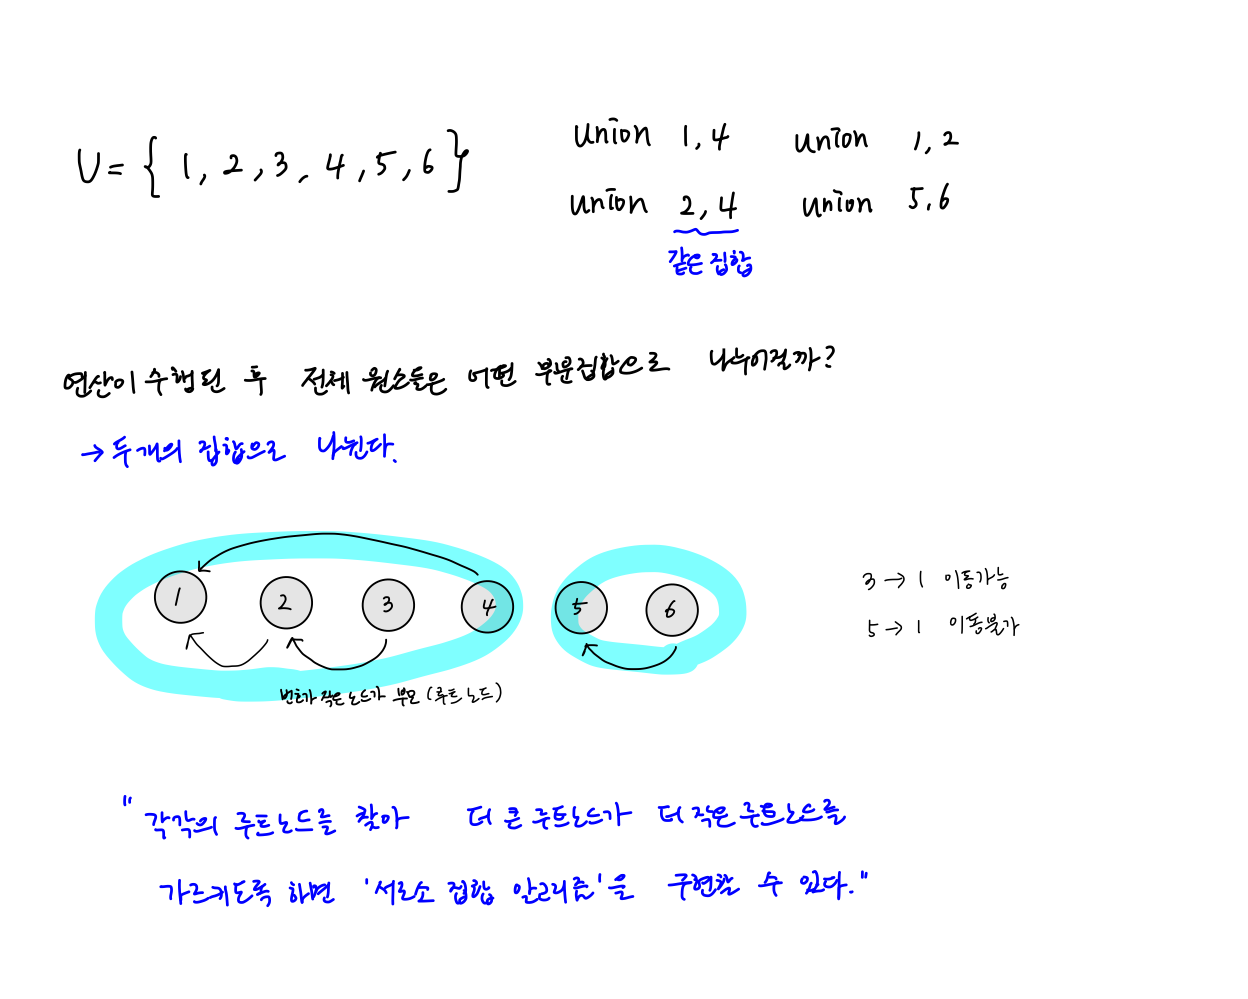 U = { 1, 2, 3, 4, 5, 6 }
union 1, 4 union 1, 2
union 2, 4 union 5, 6
같은 집합
연산이 수행된 후 전체 원소들은 어떤 부분집합으로 나누어질까?
→ 두개의 집합으로 나뉜다.
1 2 3 4 5 6
3 → 1 이동가능
5 → 1 이동불가
번호가 작은 노드가 부모 (루트 노드)
" 각각의 루트노드를 찾아 더 큰 루트노드가 더 작은 루트노드를
가르키도록 하면 '서로소 집합 알고리즘'을 구현할 수 있다."